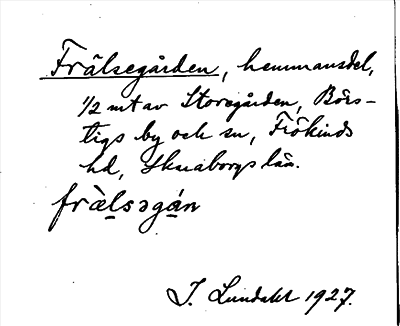 Frälsegården, hemmansdel,
1/2 mt av Storegården, Börs-
tigs by och sn, Frökinds
hd, Skaraborgs län.
frälsəgán
J. Lundahl 1927.